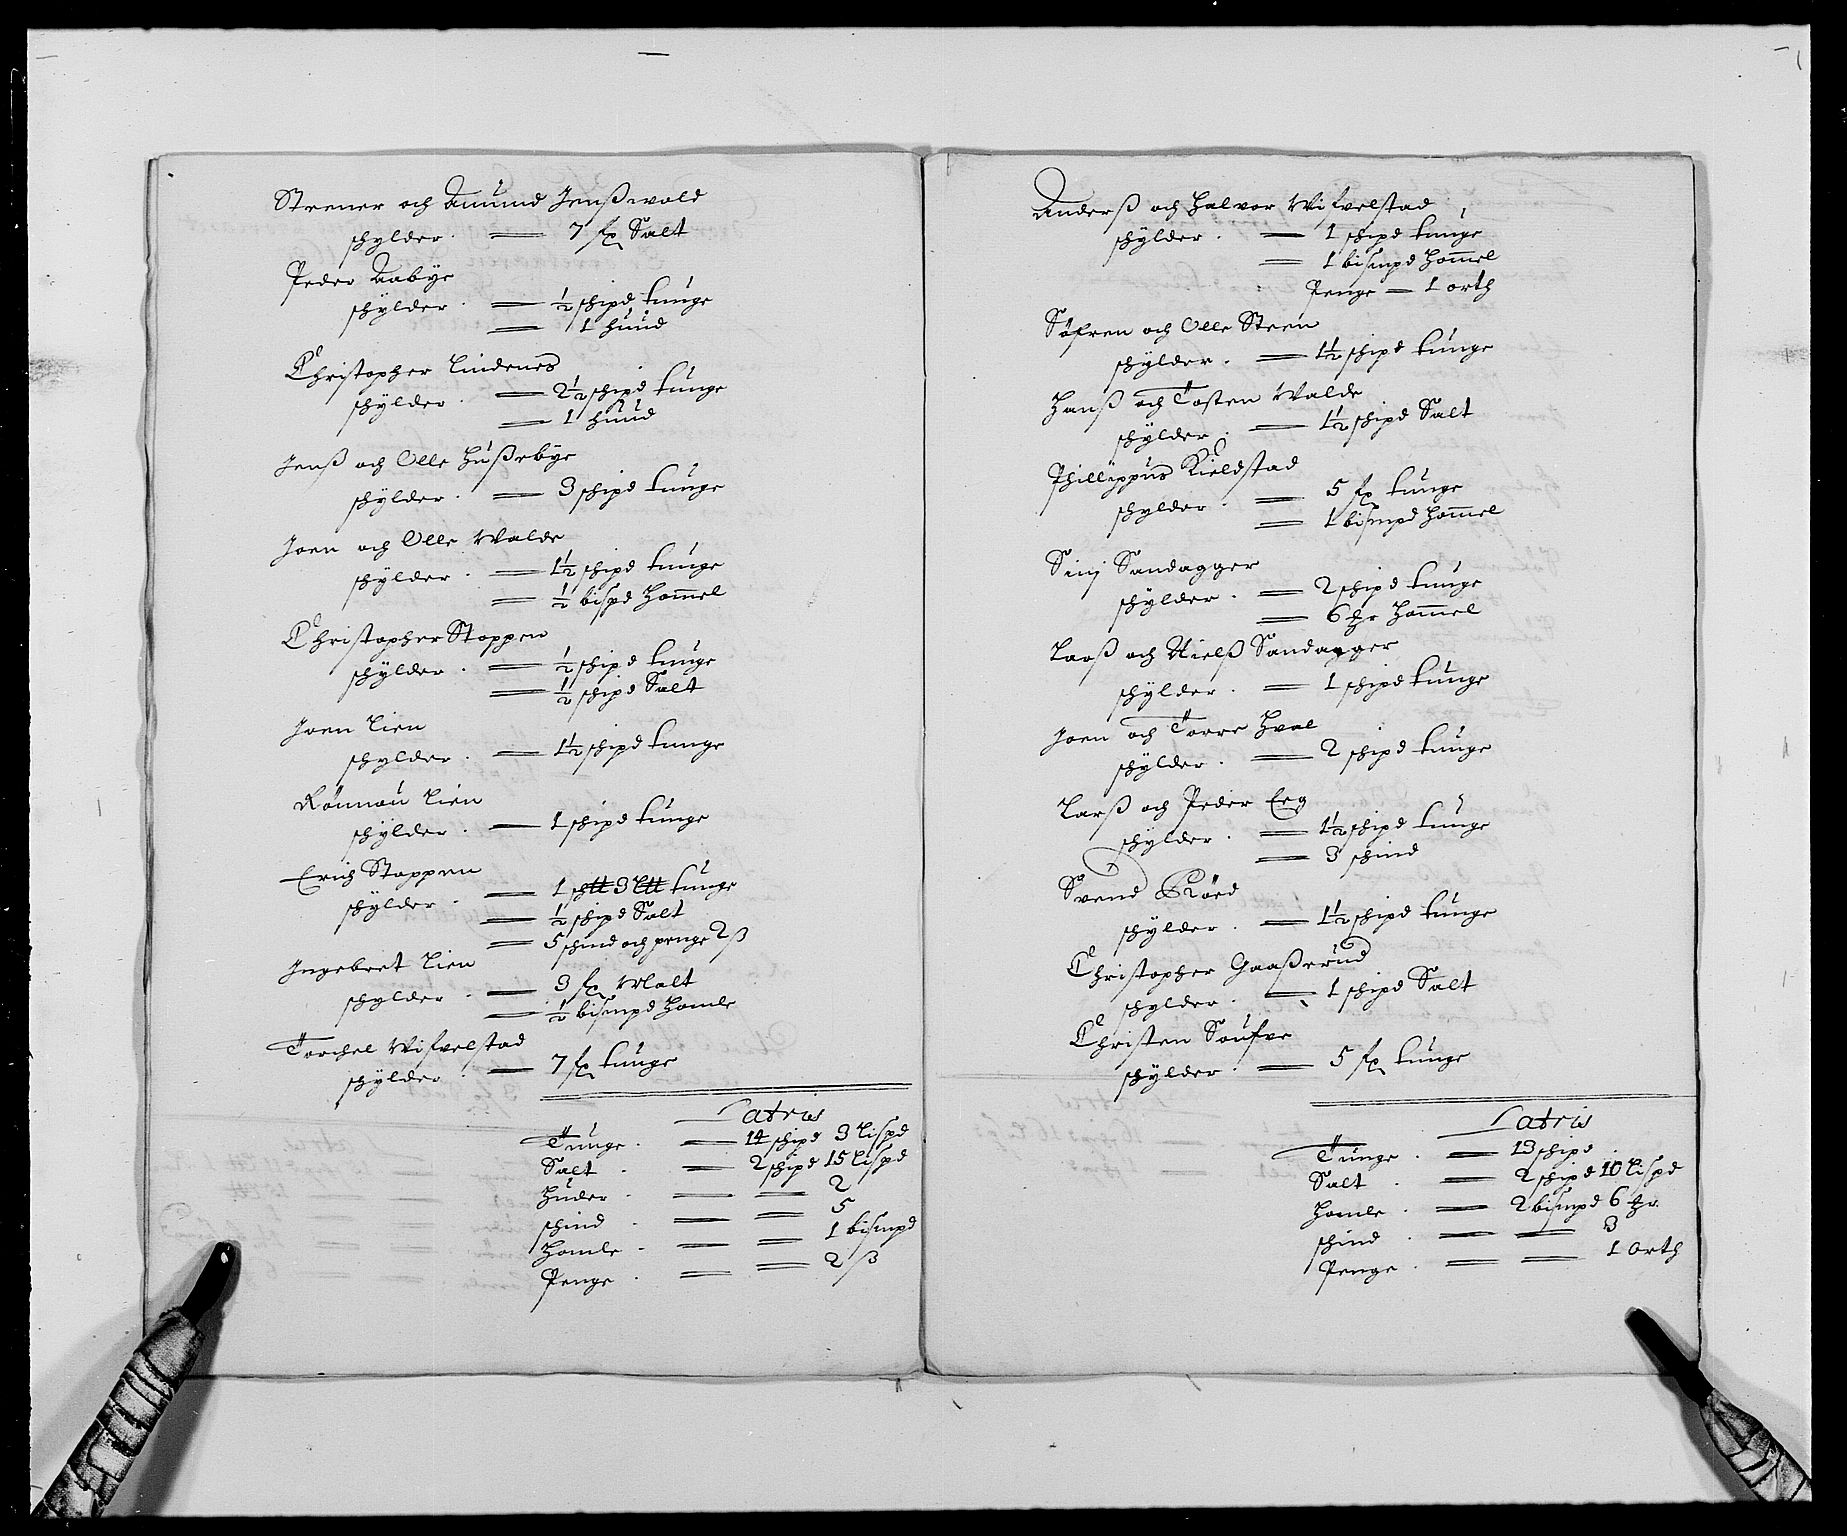 Strener och Amund Jenßvold
schylder. — 7 fz Salt
Peder Aabÿe
schylder. — ½ schipd tunge
— 1 hüüd
Christopher Lindenes
schylder. — 2½ schipd tunge
— 1 hüüd
Jenß och Olle Hußebÿe
schÿlder. — 3 schipd tunge
Joen och Olle Walde
schÿlder. — 1½ schipd tunge
— ½ bispd Hommel
Christopher Stoppen
schÿlder. — ½ schipd tunge
— ½ schipd Salt
Joen Lien
schylder. — 1½ schipd tunge
Rönnou Lien
schÿlder. — 1 schipd tunge
Erich Stoppen
schÿlder. — 1 sch℔ 3 L℔ tunge
— ½ schipd Salt
— 5 schind och penge 2 ß
Ingebret Lien
schylder. — 3 fz Malt
— ½ bismpd Homle
Torchel Wifvelstad
schÿlder — 7 fz tunge
Latris
Tunge. — 14 schipd 3 Lispd
Salt. — 2 schipd 15 Lispd
Huder. — — 2
schind. — — 5
Homle. — — 1 bismpd
Penge. — — 2 ß
Anderß och Halvor Wifvelstad
schÿlder. — 1 schipd tunge
— 1 bismpd Hommel
Penge — 1 orth
Söfren och Olle Steen
schÿlder. — 1½ schipd tunge
Hanß och Tosten Walde
schÿlder. — 1½ schipd Salt
Phillippus Kieldstad
schylder. — 5 fz tunge
— 1 bismpd Hommel
Sinj Sandagger
schÿlder. — 2 schipd tunge
— 6 hr Hommel
Laß och Nielß Sandagger
schÿlder. — 1 schipd tunge
Joen och Torre Hval
schÿlder. — 2 schipd tunge
Larß och Peder Eeg
schÿlder. — 1½ schipd tunge
— 3 schind
Svend Röed
schÿlder. — 1½ schipd tunge
Christopher Gaaßerüd
schylder. — 1 schipd Salt
Christen Soufve
schÿlder. — 5 fz tunge
Latris
Tunge. — 13 schipd
Salt. — 2 schipd 10 Lispd
Homle. — 2 bismpd 6 hr.
schind. — — 3
Penge. — — 1 Orth